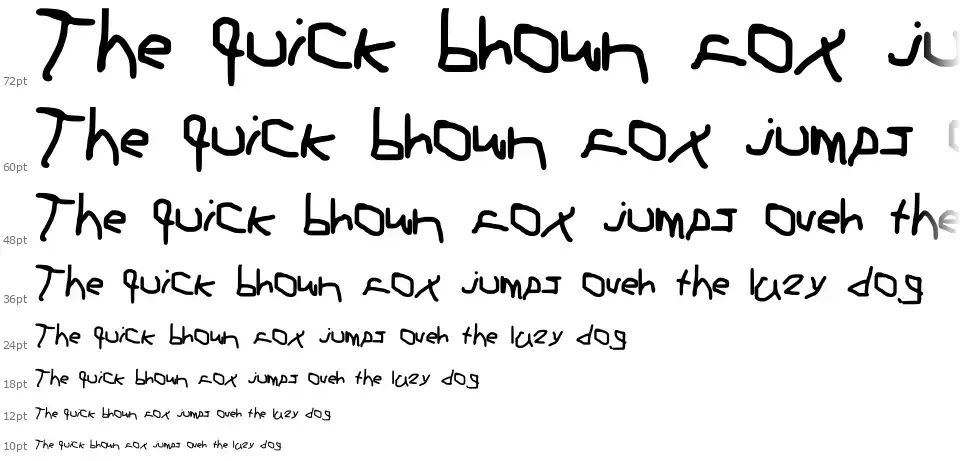 72pt The quick bhown fox ju
60pt The quick bhown fox jumps
48pt The quick bhown fox jumps oveh the
36pt The quick bhown fox jumps oveh the lazy dog
24pt The quick bhown fox jumps oveh the lazy dog
18pt The quick bhown fox jumps oveh the lazy dog
12pt The quick bhown fox jumps oveh the lazy dog
10pt The quick bhown fox jumps oveh the lazy dog